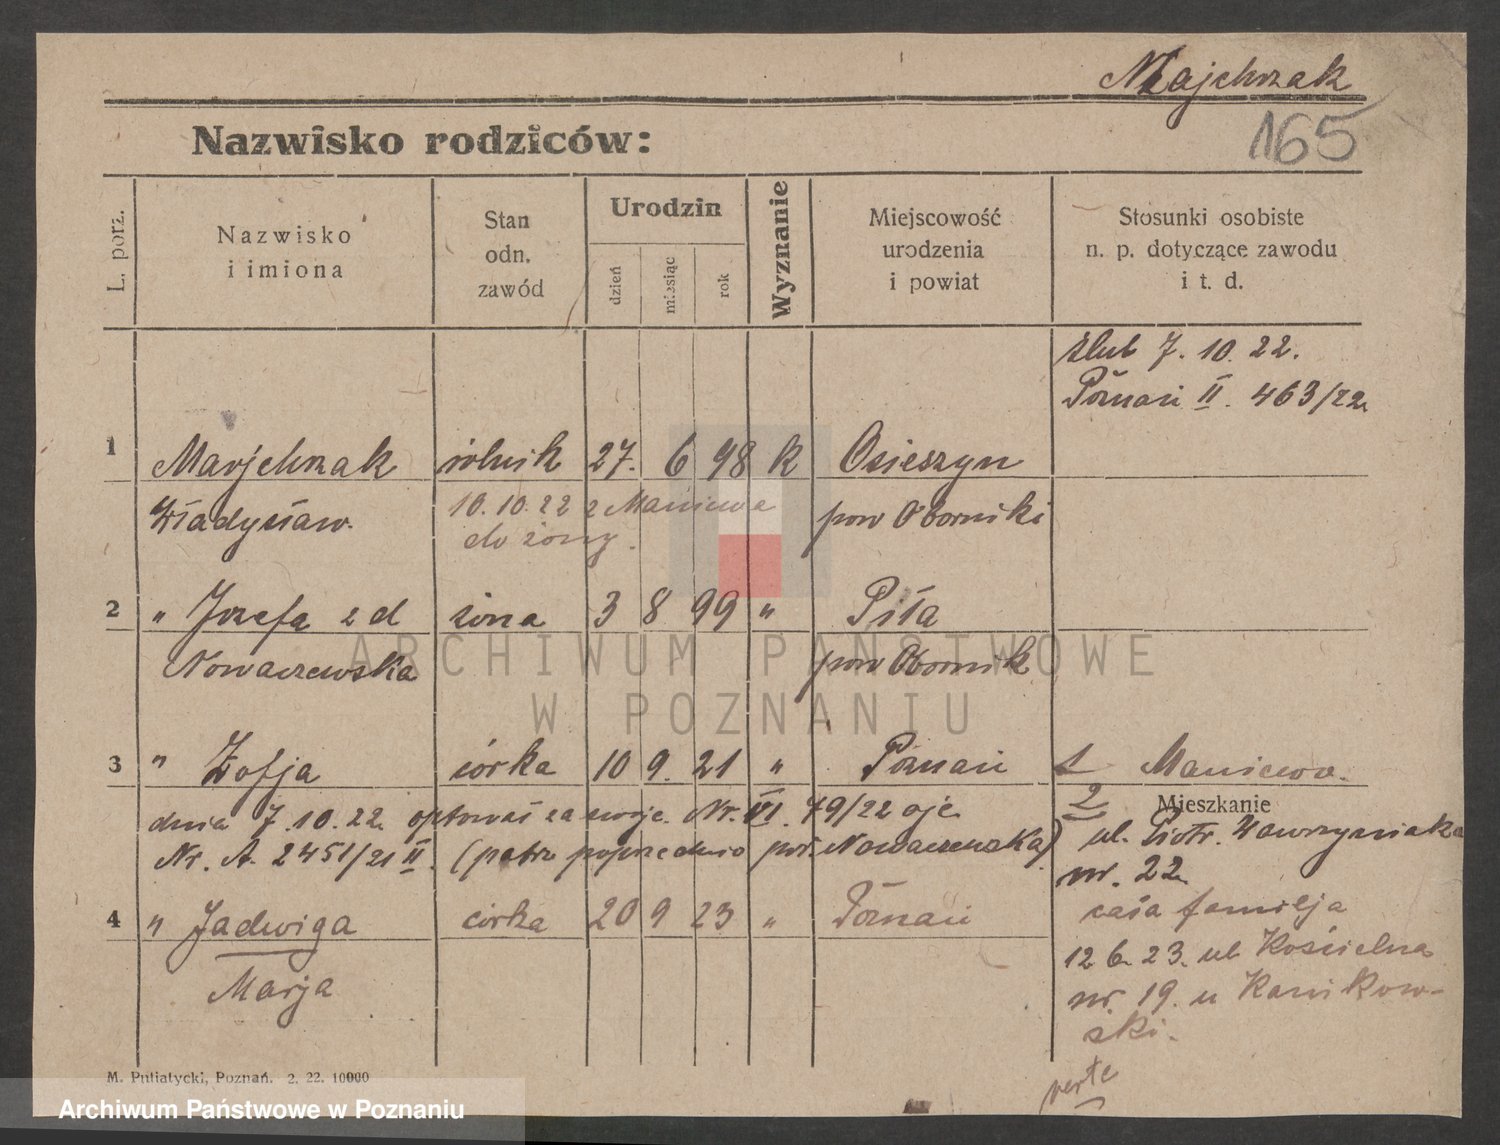 Majchrzak
165
Nazwisko rodziców:
L. porz.
Nazwisko
i imiona
Stan
odn.
zawód
Urodzin
dzień
miesiąc
rok
Wyznanie
Miejscowość
urodzenia
i powiat
Stosunki osobiste
n. p. dotyczące zawodu
i t. d.
ślub 7. 10. 22.
Poznań II. 463/22
1 Majchrzak rolnik 27. 6 98 k Osieszyn
Władysław. 10. 10. 22 z Maniewa pow Oborniki
do żony.
2 " Józefa z d żona 3 8 99 " Piła
Nowaczewska pow Obornik
ARCHIWUM PAŃSTWOWE
W POZNANIU
3 " Zofja córka 10 9. 21 " Poznań 1 Maniewo.
dnia 7. 10. 22. Nr. VI. 79/22 oje
Nr. A. 2451/21 II. (patrz poprzednio Nowaczewska)
2 Mieszkanie
ul. Piotr. Wawrzyniaka
nr. 22
4 " Jadwiga córka 20 9 23 " Poznań
Marja
cała familja
12 6. 23. ul Kościelna
nr. 19. u Kanikow-
ski.
verte
M. Putiatycki, Poznań. 2. 22. 10000
Archiwum Państwowe w Poznaniu